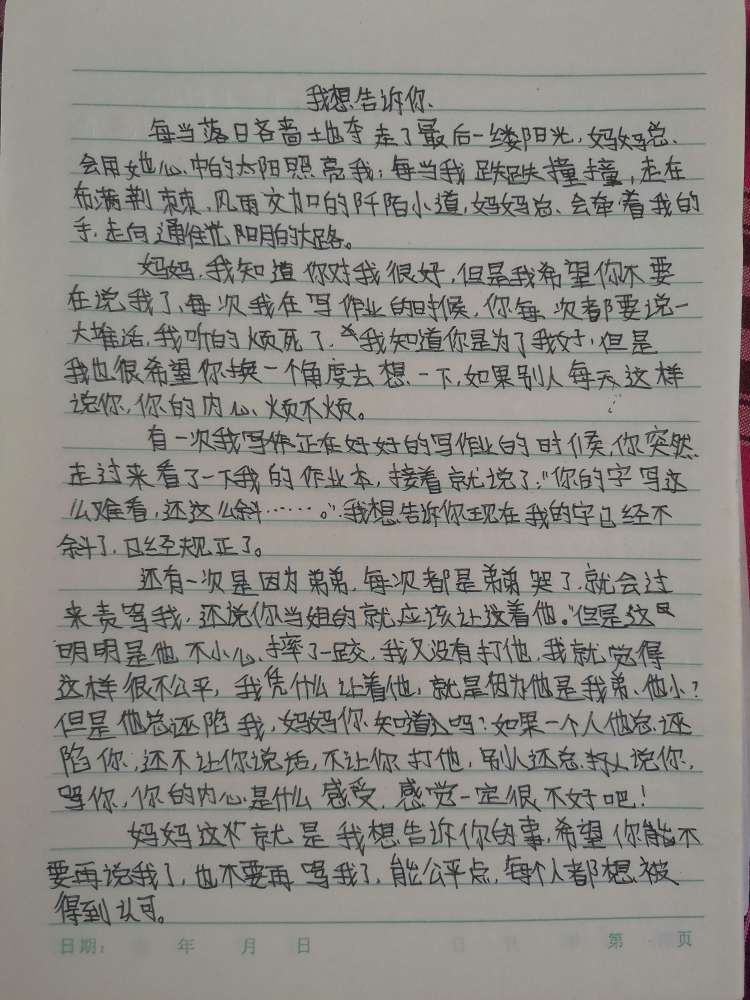 我想告诉你
每当落日吝啬土地夺走了最后一缕阳光，妈妈总
会用她心中的太阳照亮我；每当我跌跌撞撞，走在
布满荆棘、风雨交加的阡陌小道，妈妈总会牵着我的
手，走向通往阳的大路。
妈妈，我知道你对我很好，但是我希望你不要
在说我了，每次我在写作业的时候，你每次都要说一
大堆话，我听的烦死了，我知道你是为了我好，但是
我也很希望你换一个角度去想一下，如果别人每天这样
说你，你的内心烦不烦。
有一次我正在好好的写作业的时候，你突然
走过来看了一下我的作业本，接着就说了：“你的字写这
么难看，还这么斜……。”我想告诉你现在我的字已经不
斜了，已经规正了。
还有一次是因为弟弟，每次都是弟弟哭了，就会过
来责骂我，还说你当姐的就应该让这着他。”但是这
明明是他不小心摔了一跤，我又没有打他，我就觉得
这样很不公平，我凭什么让着他，就是因为他是我弟、他小？
但是他总诬陷我，妈妈你知道吗？如果一个人他总诬
陷你，还不让你说话，不让你打他，别人还总说你，
骂你，你的内心是什么感受，感觉一定很不好吧！
妈妈这就是我想告诉你的事，希望你能不
要再说我了，也不要再骂我了，能公平点，每个人都想被
得到认可。
日期： 年 月 日 第 页